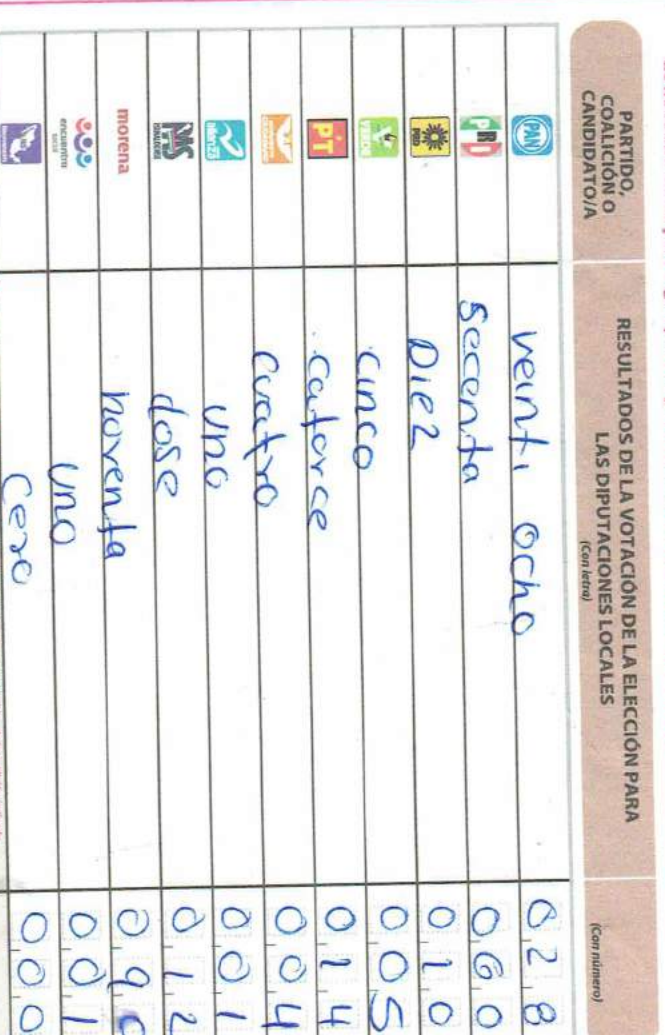 PARTIDO,
COALICIÓN O
CANDIDATO/A
RESULTADOS DE LA VOTACIÓN DE LA ELECCIÓN PARA
LAS DIPUTACIONES LOCALES
(Con letra)
(Con número)
PAN veinti ocho 028
PRI Secenta 060
PRD Diez 010
VERDE cinco 005
PT catorce 014
cuatro 004
alianza uno 001
dose 012
morena noventa 09
encuentro uno 001
Cero 000